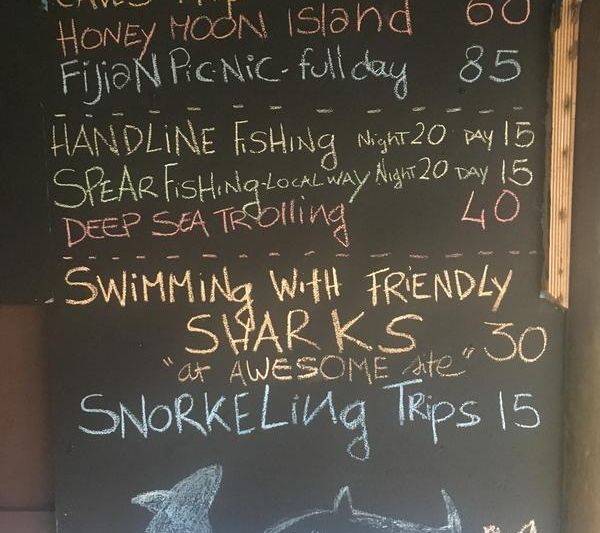 HONEY MOON Island 60
FijiaN PicNic - full day 85
HANDLiNE FiSHiNg Night 20 DAY 15
SPEAR FiSHiNg - LOCAL WAY Night 20 DAY 15
DEEP SEA TROlling 40
SWiMMiNg WitH FRiENDLY
SHARKS 30
"at AWESOME site"
SNORKELiNg TRips 15